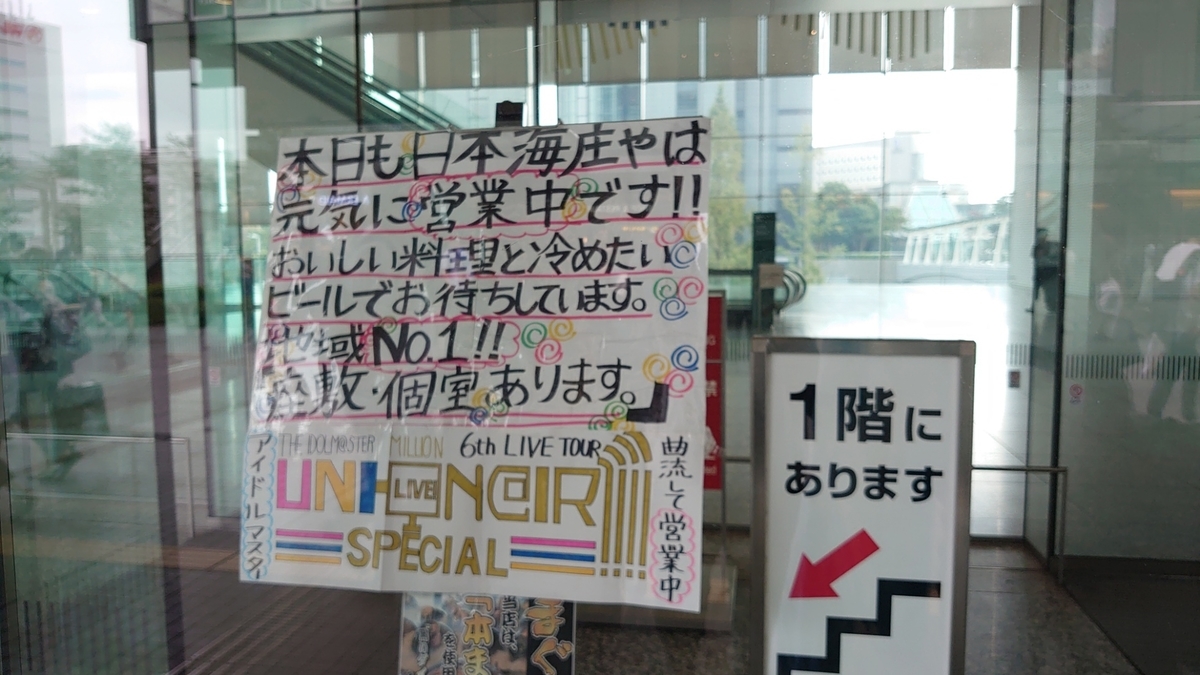 本日も日本海庄やは
元気に営業中です!!
おいしい料理と冷めたい
ビールでお待ちしています。
地域No.1!!
座敷・個室あります。
アイドルマスター
THE IDOLM@STER MILLION 6th LIVE TOUR
UNI-ON@IR!!!!
LIVE!
SPECIAL
曲流して営業中
1階に
あります
まぐ
本ま
当店は、
を使用